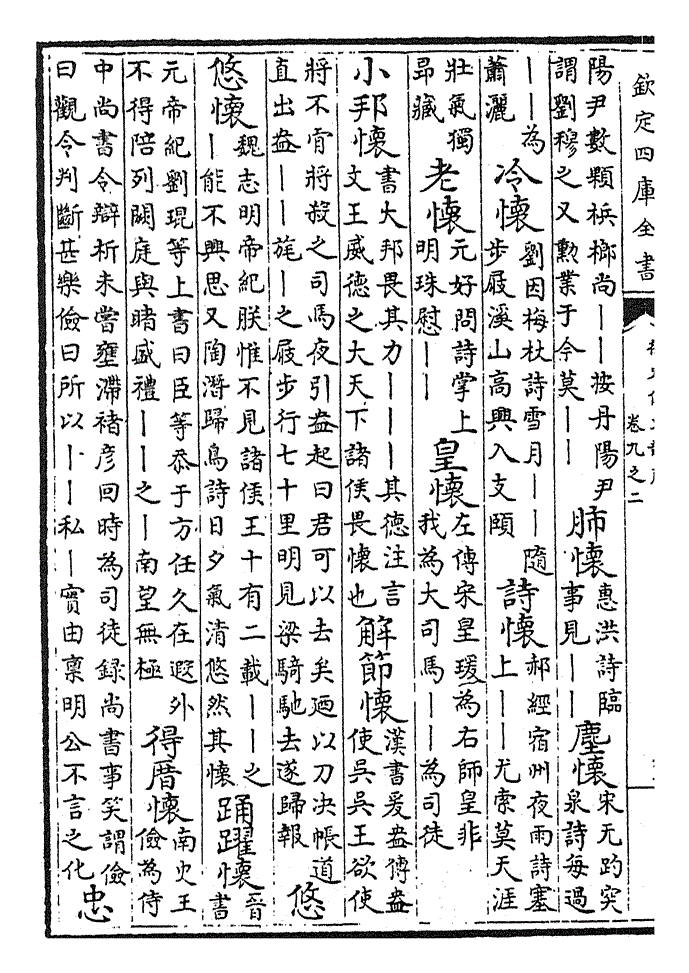 欽定四庫全書
卷九之二
陽尹數顆檳榔尚——按丹陽尹謂劉穆之又勳業于今莫—— 肺懷 惠洪詩臨事見—— 塵懷 宋无趵突泉詩每過
——為蕭灑 冷懷 劉因梅杖詩雪月——隨步屐溪山高興入支頤 詩懷 郝經宿州夜雨詩塞上——尤索莫天涯
壮氣獨昻藏 老懷 元好問詩掌上明珠慰—— 皇懷 左傳宋皇瑗為右師皇非我為大司馬——為司徒
小邦懷 書大邦畏其力———其德注言文王威德之大天下諸侯畏懷也 解節懷 漢書爰盎傳盎使吳吳王欲使
將不肯將殺之司馬夜引盎起曰君可以去矣廼以刀决帳道直出盎——旄—之屐步行七十里明見梁騎馳去遂歸報 悠
悠懷 魏志明帝紀朕惟不見諸侯王十有二載——之—能不興思又陶潛歸鳥詩日夕氣清悠然其懷 踊躍懷 晉書
元帝紀劉琨等上書曰臣等忝于方任久在遐外不得陪列闕庭與睹盛禮——之—南望無極 得厝懷 南史王儉為侍
中尚書令辯析未嘗壅滯褚彦回時為司徒録尚書事笑謂儉曰觀令判斷甚樂儉曰所以——私—實由稟明公不言之化 忠